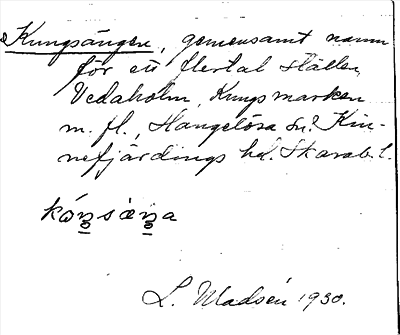 Kungsängen, gemensamt namn
för ett flertal ställen,
Vedaholm, Kungsmarken
m. fl., Hangelösa sn? Kin-
nefjärdings hd. Skarab. l.
L. Madsén 1930.